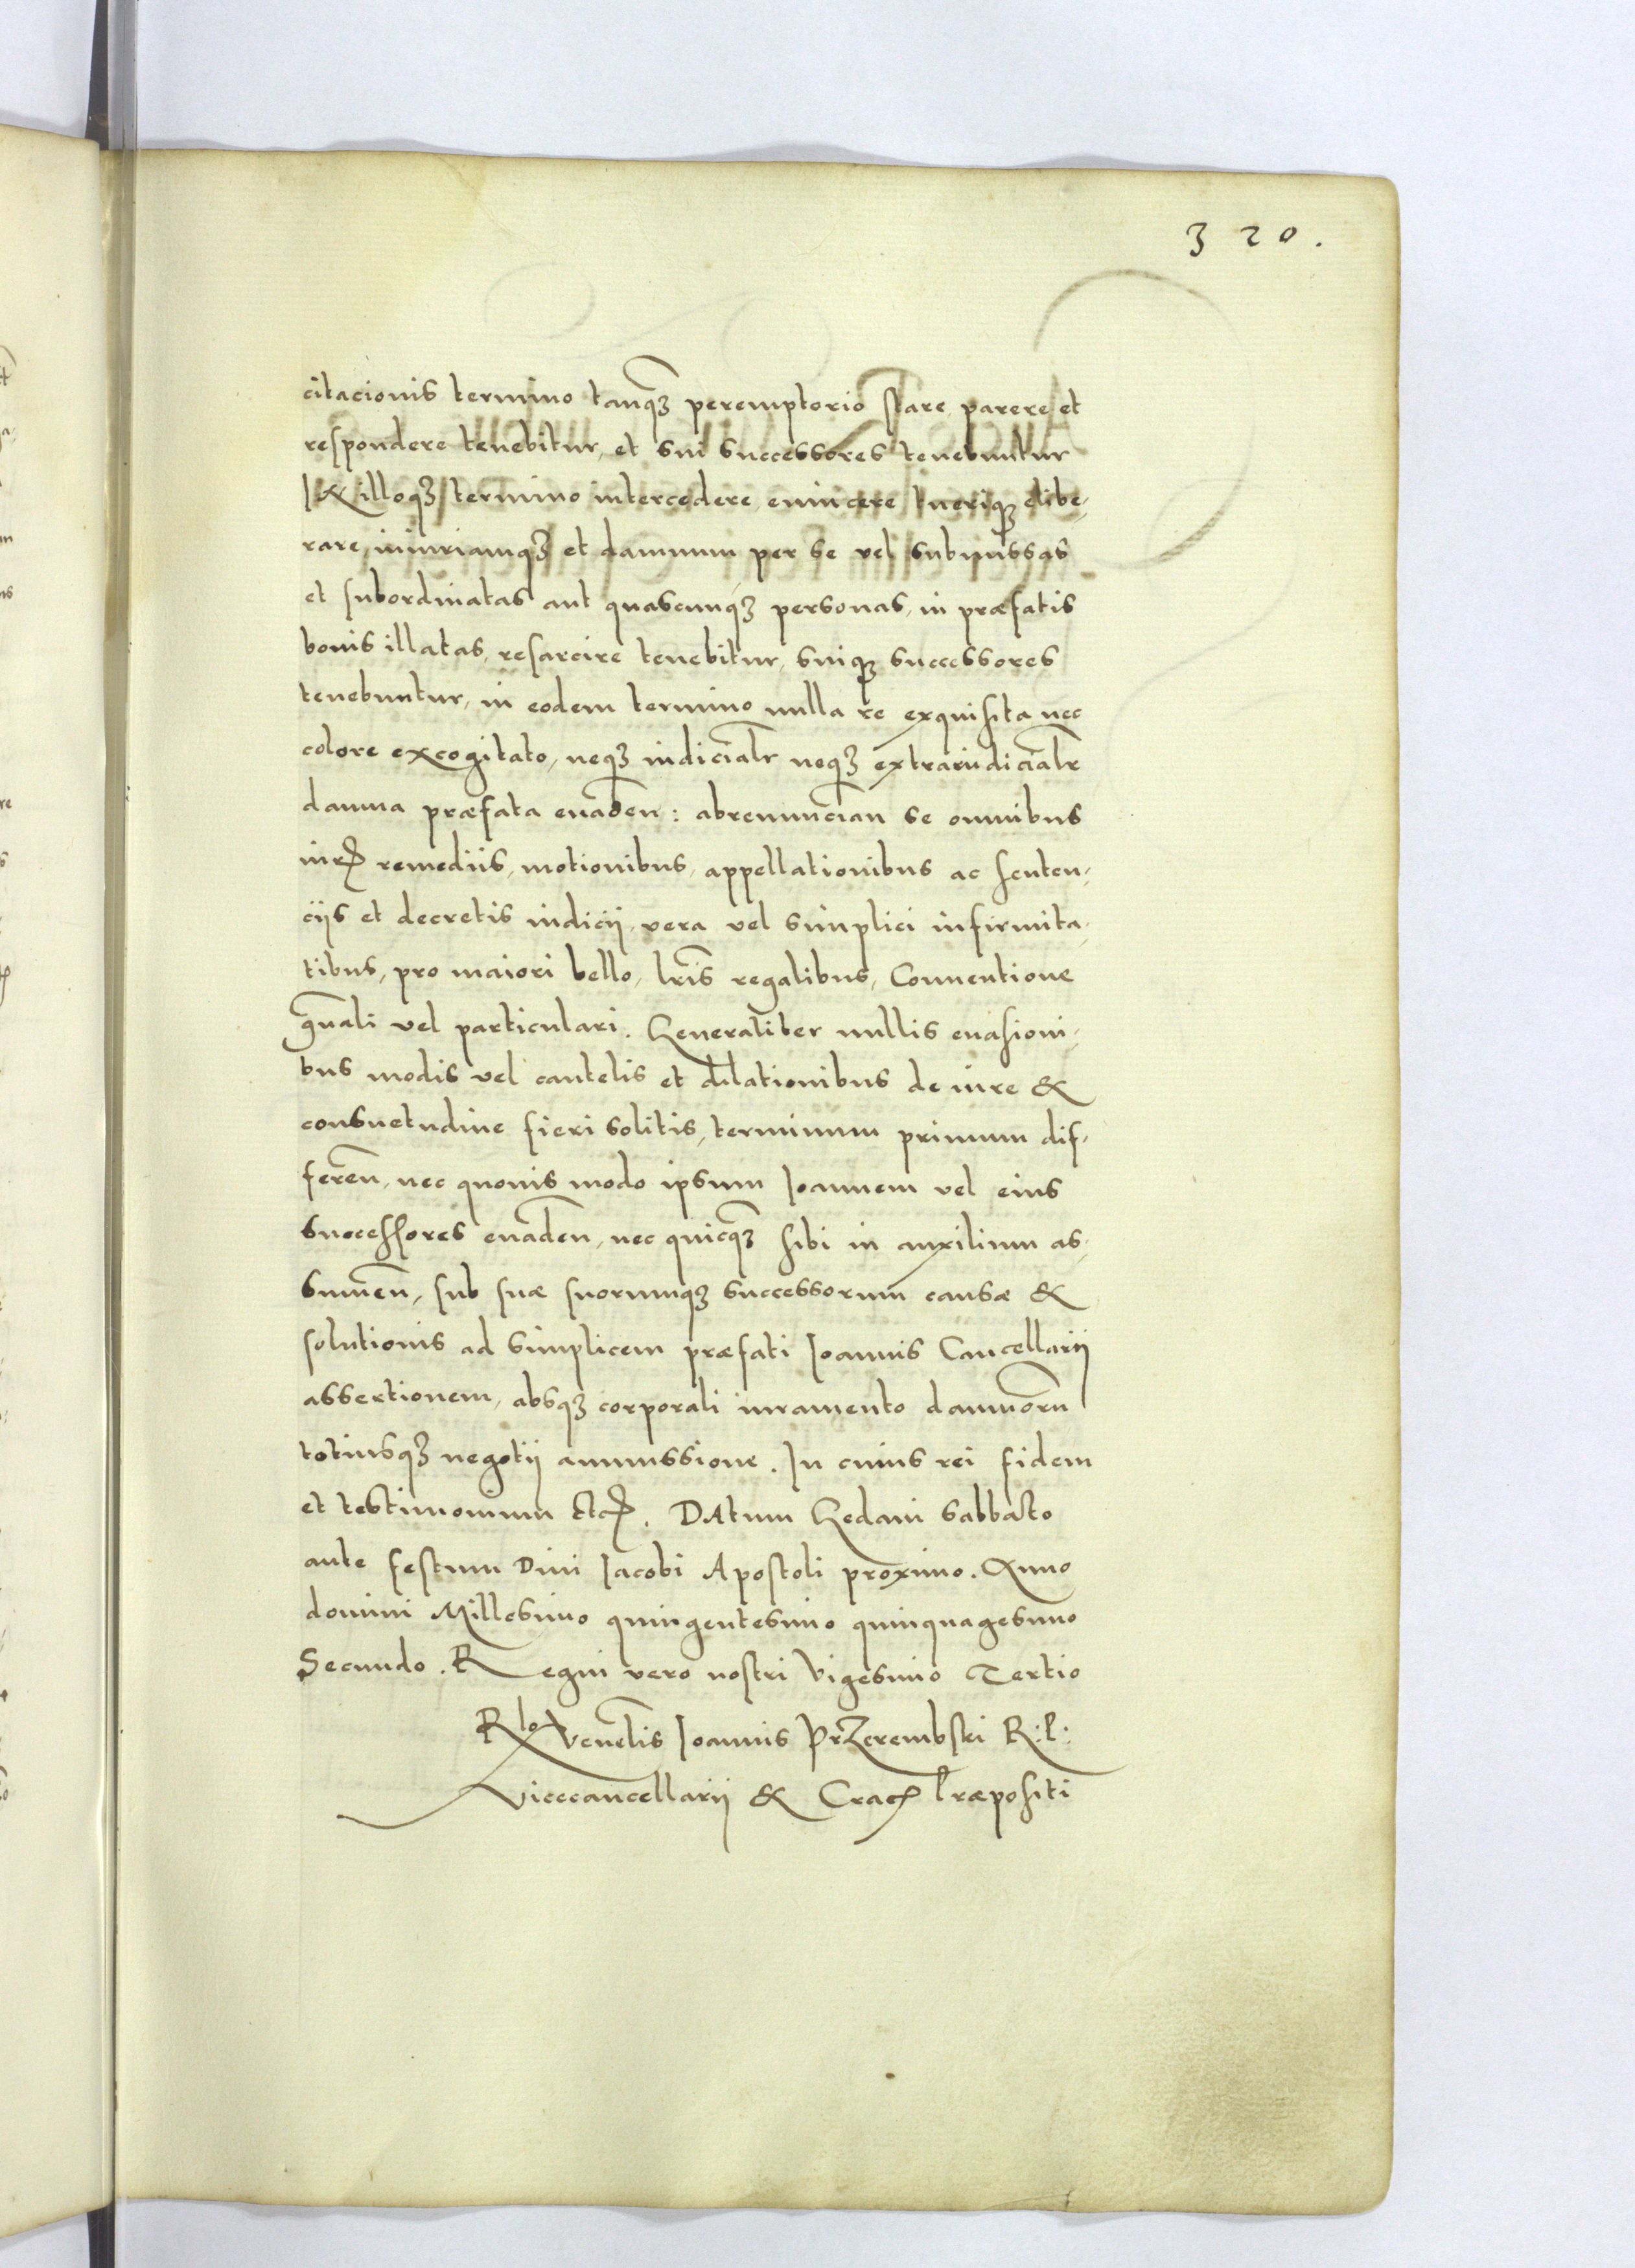 320.
citacionis termino tanqꝫ peremptorio stare parere et
respondere tenebitur, et sui successores tenebuntur
& illoqꝫ termino intercedere evincere tueriqꝫ elibe,
rare, iniuriamqꝫ et damnum per se vel submissas
et subordinatas aut quascunqꝫ personas, in præfatis
bonis illatas, resarcire tenebitur, suiqꝫ successores
tenebuntur, in eodem termino nulla re exquisita nec
colore excogitato, neqꝫ iudicialr neqꝫ extraiudicialr
damna præfata evaden: abrenuncian se omnibus
iurꝭ remediis, motionibus, appellationibus ac senten,
ciis et decretis iudicij, vera vel simplici infirmita,
tibus, pro maiori bello, lris regalibus, Conuentione
gnali vel particulari. Generaliter nullis euasioni,
bus modis vel cautelis et dilationibus de iure &
consuetudine fieri solitis, terminum primum dif,
feren, nec quouis modo ipsum Joannem vel eius
successores euaden, nec quicqꝫ sibi in auxilium as,
sumen, sub suæ suorumqꝫ successorum causæ &
solutionis ad simplicem præfati Joannis Cancellarij
assertionem, absqꝫ corporali iuramento damnoru
totiusqꝫ negotij ammissione. In cuius rei fidem
et testimonium etcꝭ. DAtum Gedani Sabbato
ante festum Diui Jacobi Apostoli proximo. Anno
domini Millesimo quingentesimo quinquagesimo
Secundo. Regni vero nostri Vigesimo Tertio
Rlo Venelis Joannis Przerembski R: P:
Vicecancellarij & Cracꝭ Præpositi